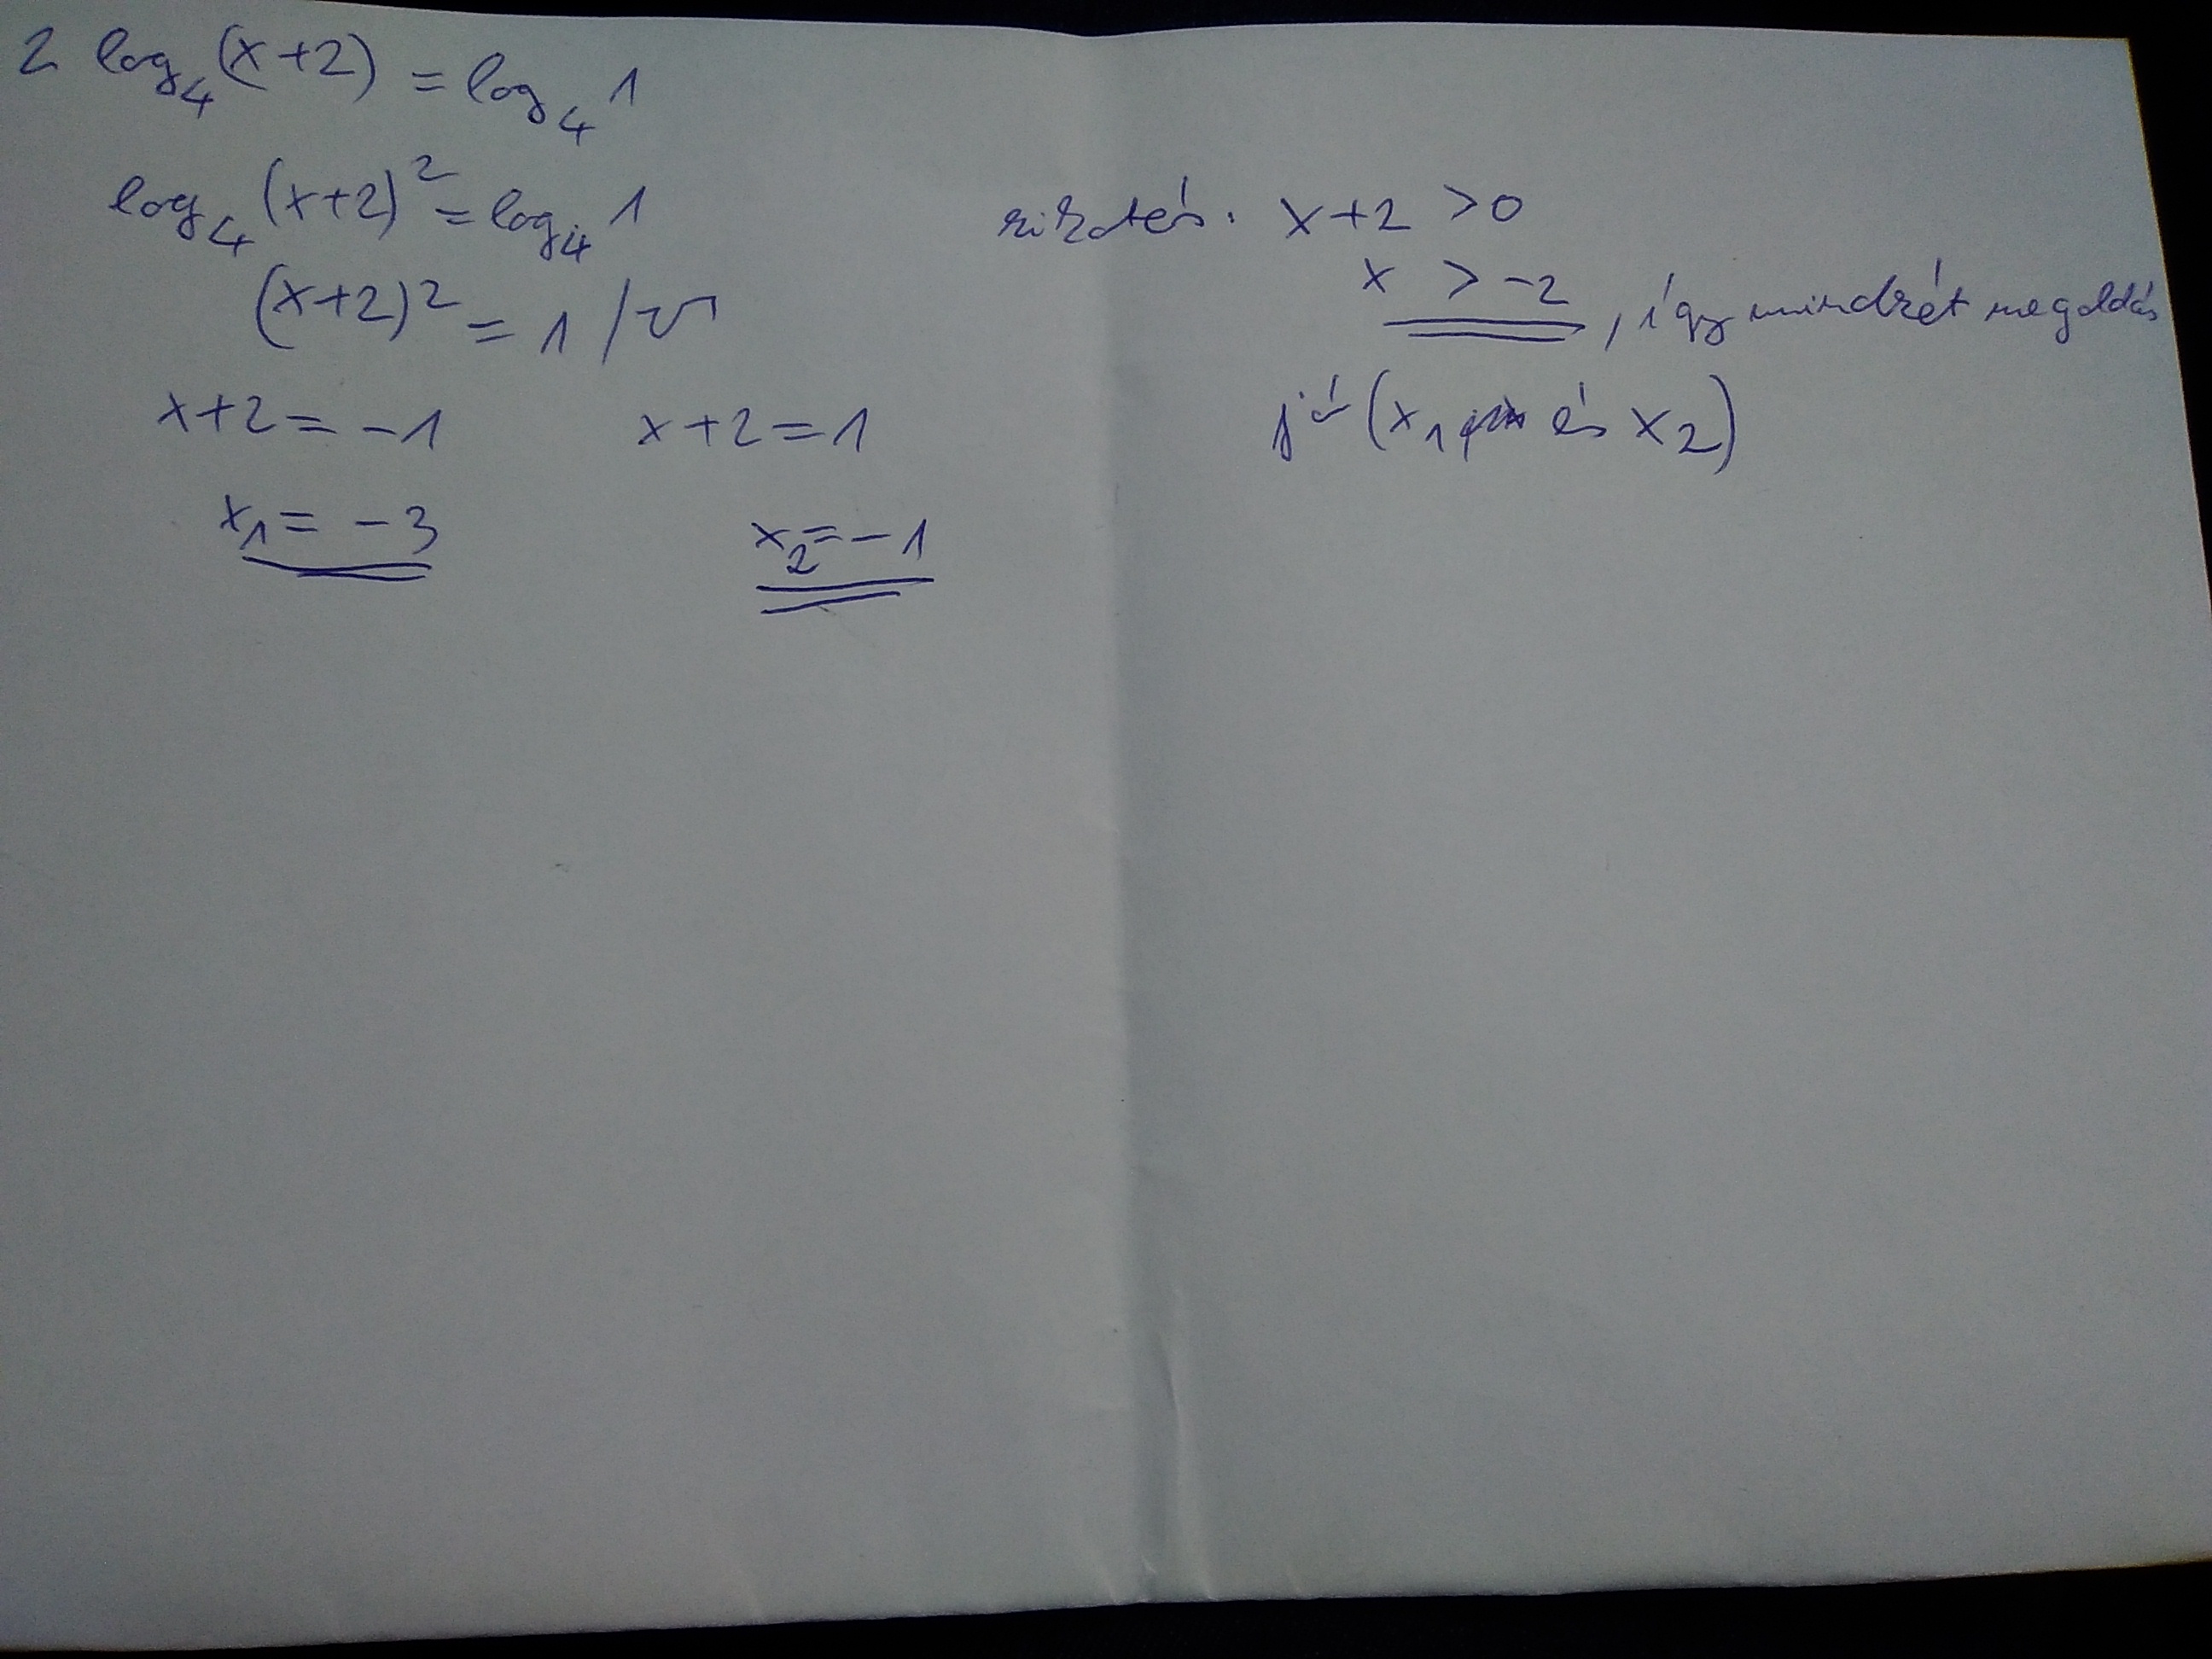 2 log₄(x+2) = log₄ 1
log₄(x+2)² = log₄ 1
(x+2)² = 1 /√
x+2 = -1 x+2 = 1
x₁ = -3 x₂ = -1
kikötés: x+2 >0
x > -2, így mindkét megoldás
jó (x₁ és x₂)